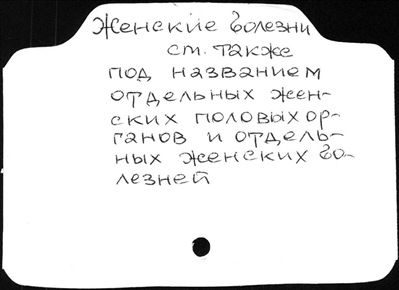 Женские болезни
см. также
под названием
отдельных жен-
ских половых ор-
ганов и отдель-
ных женских бо-
лезней